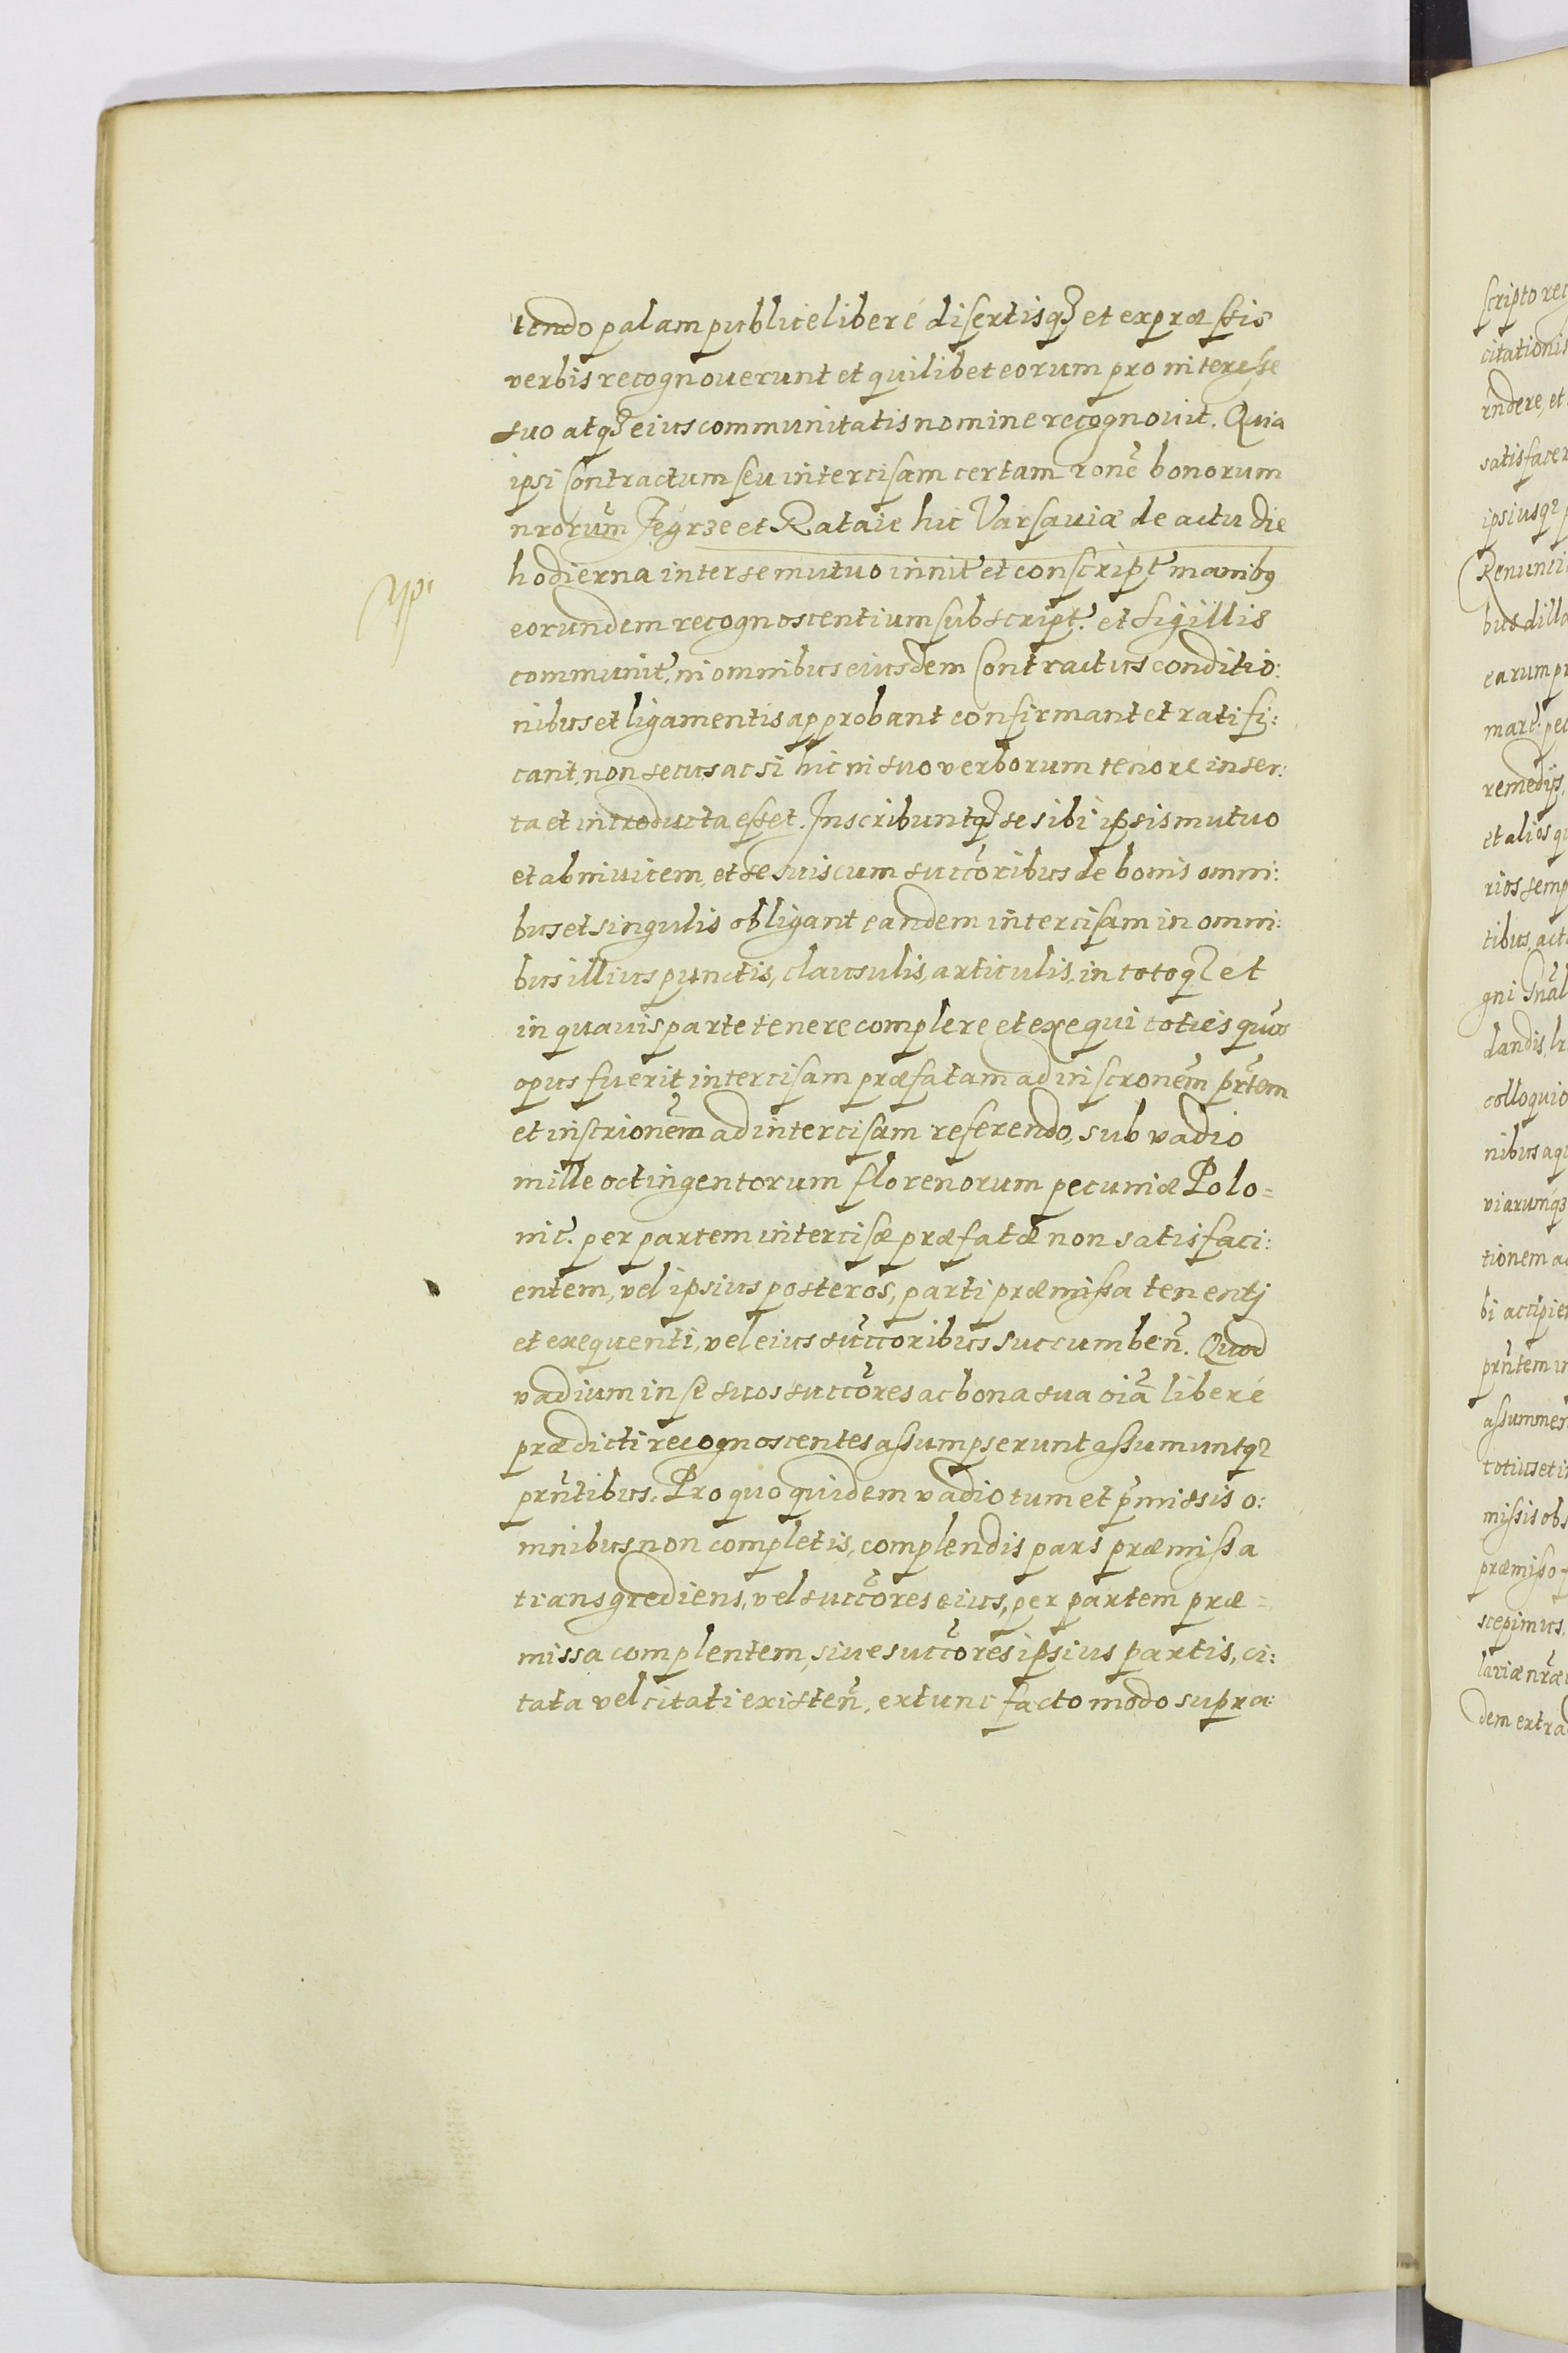 tendo palam publice liberé disertisqꝫ et expræssis
verbis recognoverunt et quilibet eorum pro interesse
suo atqꝫ eius communitatis nomine recognovit. Quia
ipsi Contractum seu intercisam certam rone bonorum
nrorum Jegrze et Rataie hic Varsaviæ de actu die
hodierna inter se mutuo innit. et conscript. manibꝯ
eorundem recognoscentium subscript. et sigillis
communit. in omnibus eiusdem Contractus conditio:
nibus et ligamentis approbant confirmant et ratifi:
cant, non secus ac si hic in suo verborum tenore inser:
ta et introducta esset. Inscribuntqꝫ se sibi ipsis mutuo
et ab invicem, et se suis cum succoribus de bonis omni:
bus et singulis obligant eandem intercisam in omni:
bus illius punctis, clausulis, articulis, in totoqꝫ et
in quavis parte tenere complere et exequi toties quos
opus fuerit intercisam præfatam ad inscronem prtem
et inscrionem ad intercisam referendo, sub vadio
mille octingentorum florenorum pecuniæ Polo=
nic. per partem intercisæ præfatæ non satisfaci:
entem, vel ipsius posteros, parti præmissa tenentj
et exequenti, vel eius succoribus succumben. Quod
vadium in se suos succores ac bona sua oia liberé
prædicti recognoscentes assumpserunt assumuntqꝫ
prntibus. Pro quo quidem vadio tum et pmissis o:
mnibus non completis, complendis pars præmissa
transgrediens, vel succores eius, per partem præ=
missa complentem, sive succores ipsius partis, ci:
tata vel citati existen, extunc facto modo supra:
scripto
Renuncii
remedijs,
et alios
tibus, act
landis,
colloquio
tionem
prntem
totius et
præmisso
scepimus,
dem extra